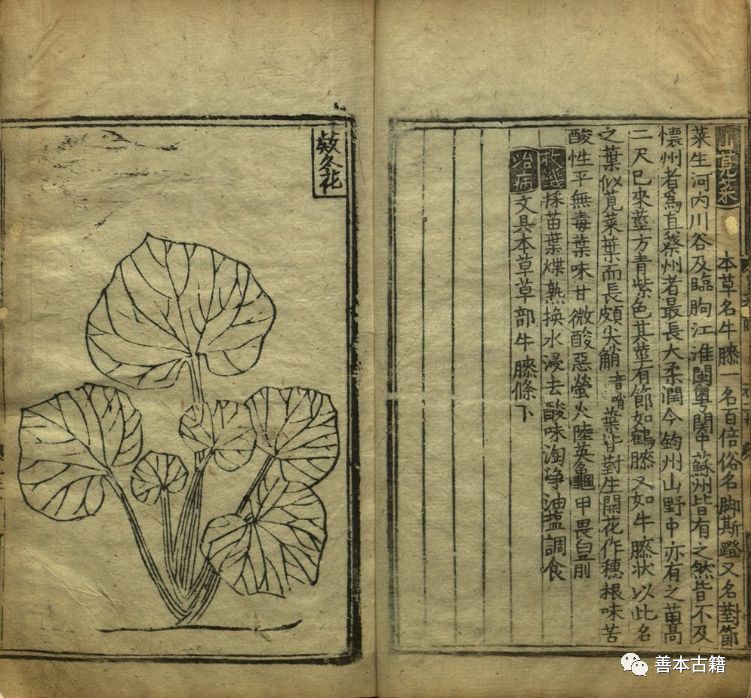 山莧菜 本草名牛膝一名百倍俗名脚斯蹬又名對節
菜生河内川谷及臨朐江淮閩粤關中蘇州皆有之然皆不及
懷州者爲真蔡州者最長大柔潤今鈞州山野中亦有之苗高
二尺已來莖方青紫色其莖有節如鶴膝又如牛膝狀以此名
之葉似莧菜葉而長頗尖艄音哨葉皆對生開花作穗根味苦
酸性平無毒葉味甘微酸惡螢火陸英龜甲畏白前
救飢 採苗葉煠熟換水浸去酸味淘淨油鹽調食
治病 文具本草草部牛膝條下
欵冬花
善本古籍